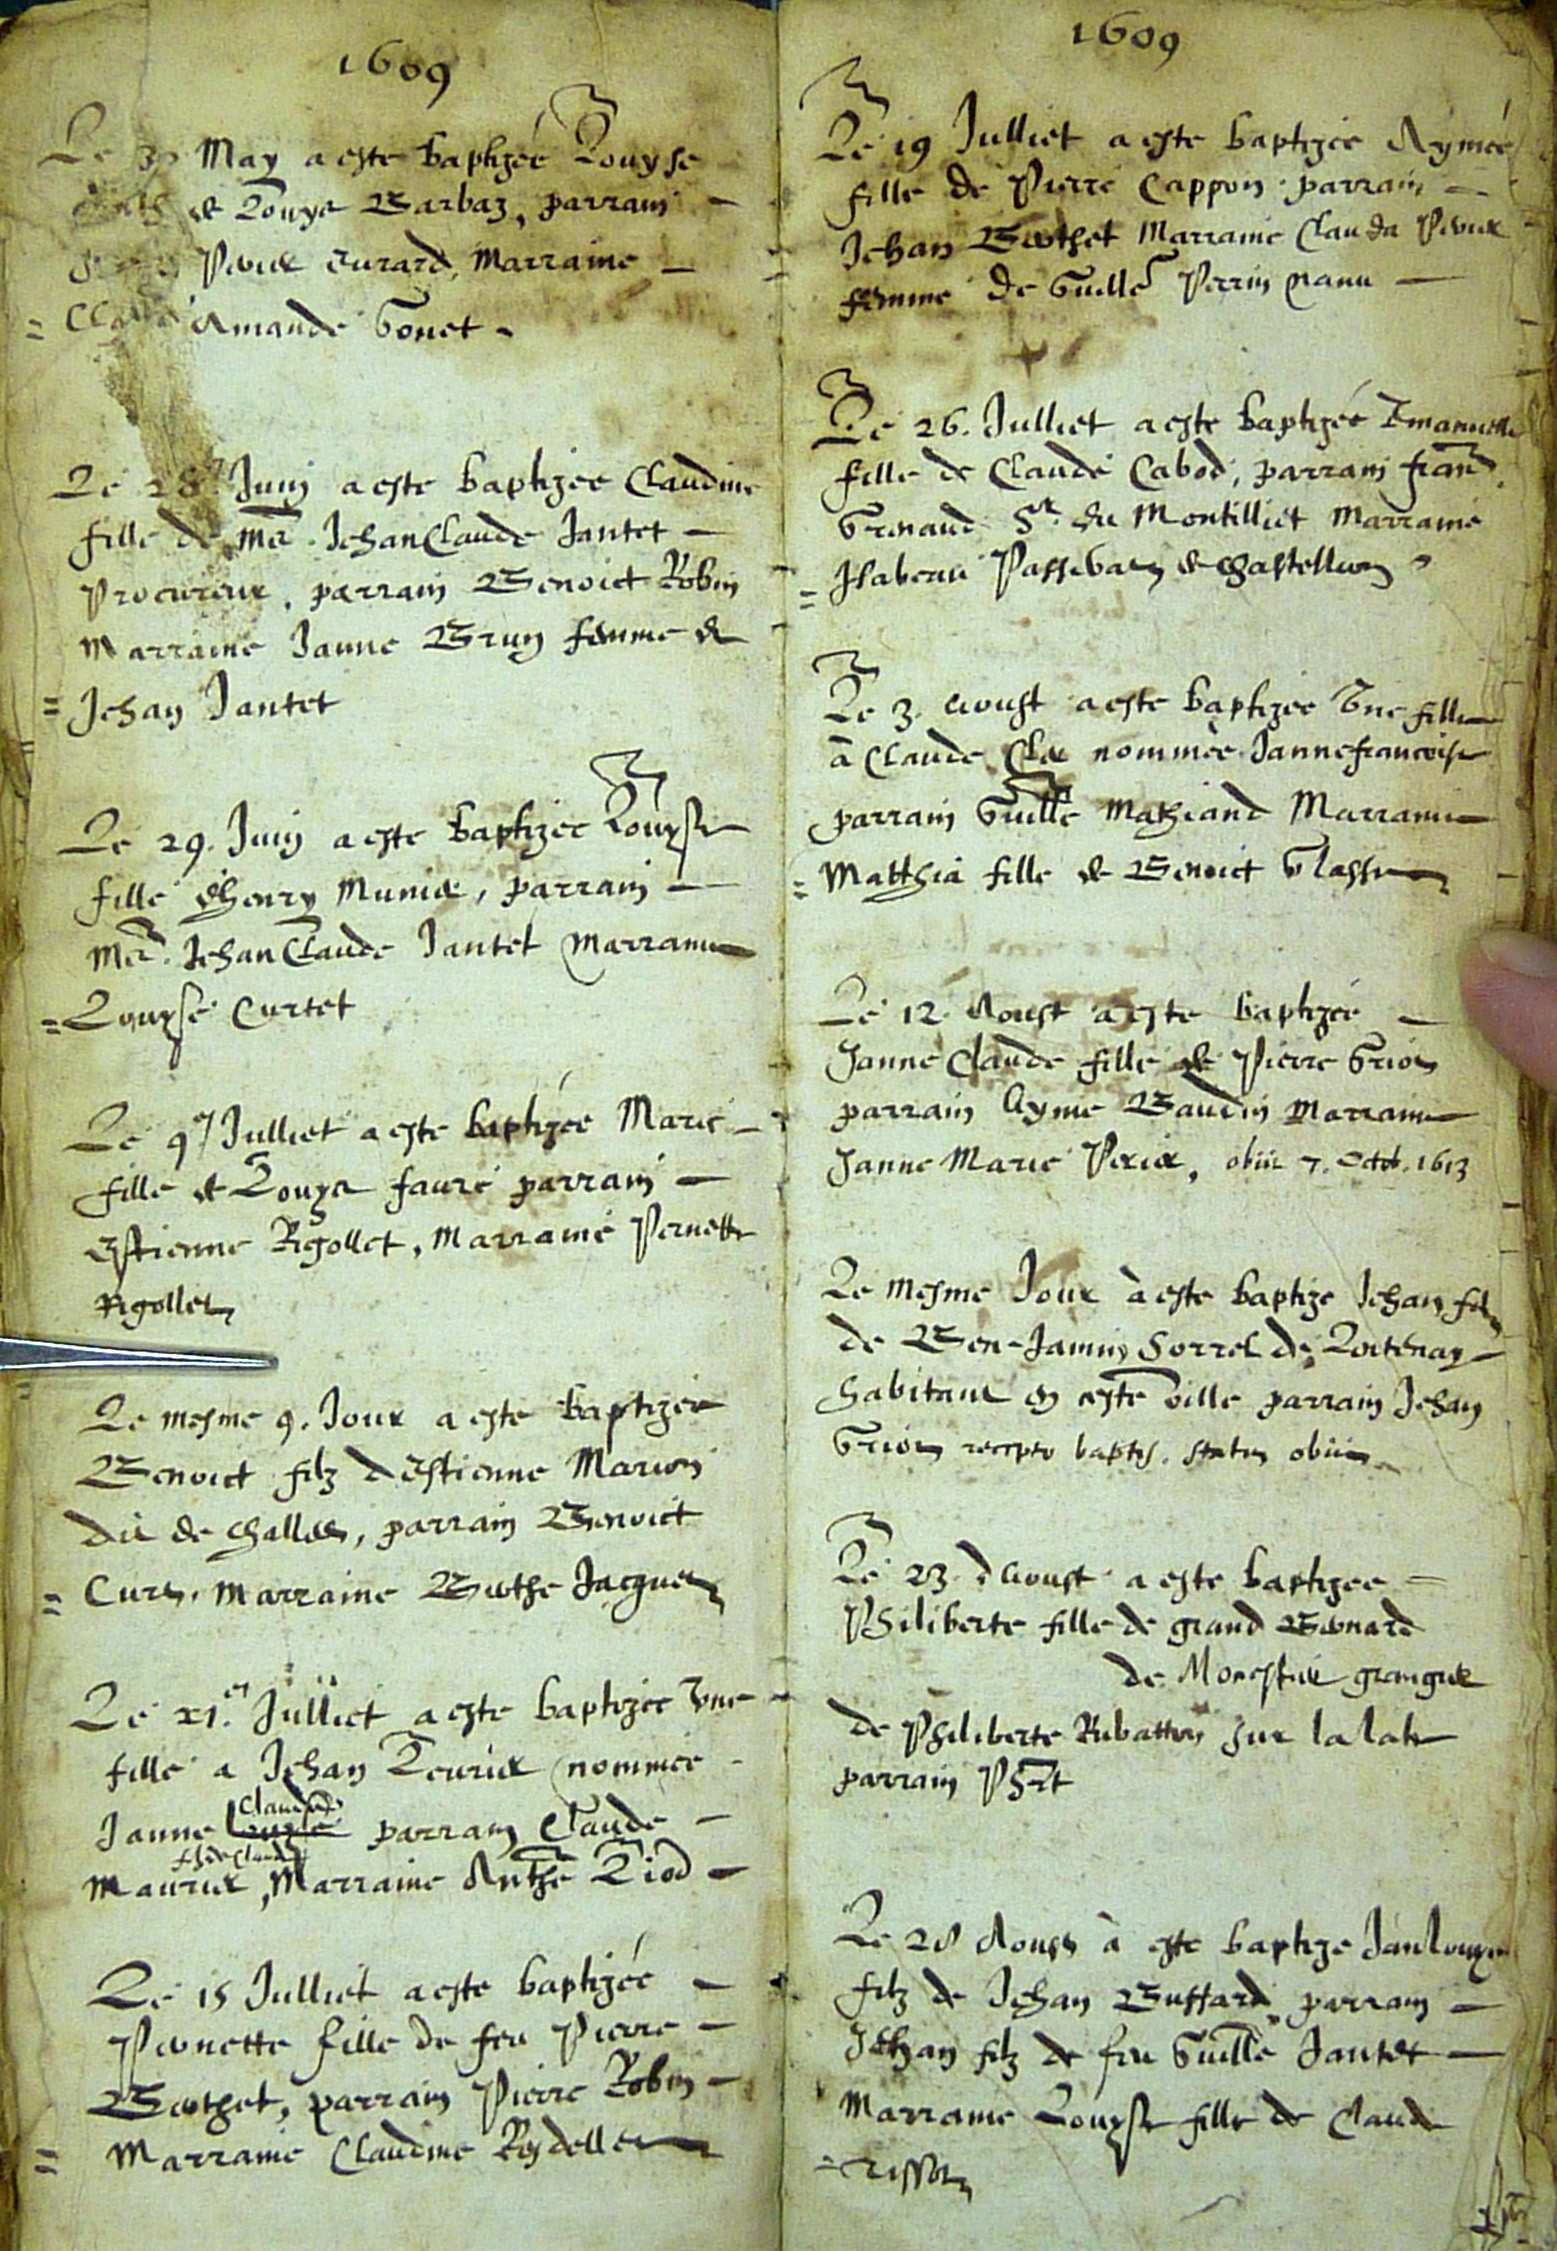 1609
Le 30 May a este baptizée Louyse
de Louys Barbaz, parrain
Pierre Eurard, Marraine
Claude Amande Gonet
Le 28 Juin a este baptizée Claudine
fille de Me. Jehan Claude Jantet
Procureur, parrain Benoict Robin
Marraine Janne Brun femme de
Jehan Jantet
Le 29. Juin a este baptizée Louyse
fille d'henry Munier, parrain
Me. Jehan Claude Jantet Marraine
Louyse Curtet
Le 9e Julliet a este baptizée Marie
fille de Louys faure parrain
Estienne Rigollet, Marraine Pernette
Rigollet
Le mesme 9. Jour a este baptizée
Benoict filz d'Estienne Marion
dit de challes, parrain Benoict
Curt. Marraine Berthe Jacquet
Le 11.e Julliet a este baptizée Une
fille a Jehan Tenrier nommée
Janne Claude parrain Claude
fz de Claude
Maurier, Marraine Anthe Tiod
Le 15 Julliet a este baptizée
Pernette fille de feu Pierre
Berthet, parrain Pierre Robin
Marraine Claudine Reydellet
1609
Le 19 Julliet a este baptizée Aymée
fille de Pierre Cappon parrain
Jehan Berthet Marraine Clauda Perier
femme de Guille Perrin
Le 26. Julliet a este baptizée Emanuelle
fille de Claude Cabod, parrain fran
Grenaud Sr. du Montilliet Marraine
Isabeau Passerat de chastellion
Le 3. Aoust a este baptizée Une fille
à Claude Cler nommée Janne francoise
parrain Guille Mathiand Marraine
Matthia fille de Benoict
Le 12. Aoust a este baptizée
Janne Claude fille de Pierre Grion
parrain Ayme Baudin Marraine
Janne Marie Perier, obiit 7. Octob. 1613
Le mesme Jour à este baptize Jehan filz
de Ben-Jamin Sorrel de Lortenay
habitant en ceste ville parrain Jehan
Grion recepto baptis. statim obiit
Le 23. d'Aoust a este baptizée
Philiberte fille de grand Bernard
de Monestier grangier
de Philiberte Rubatton sur la
parrain Phrt
Le 28 Aoust à este baptize Jan Louys
filz de Jehan Buffard parrain
Jehan filz de feu Guille Jantet
Marraine Louyse fille de Claude
Tissot